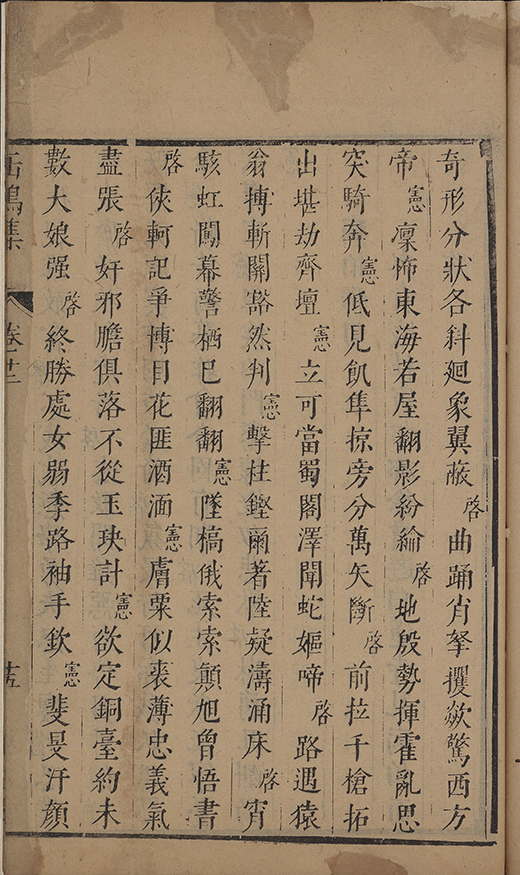 奇形分狀各糾廻象翼蔽啓曲踊肖拏攫欻驚西方
帝憲凜怖東海若屋翻影紛綸啓地殷勢揮霍亂思
突騎奔憲低見飢隼掠旁分萬矢斷啓前拉千槍拓
出堪劫齊壇憲立可當蜀閣澤聞蛇嫗啼啓路遇猿
翁搏斬關豁然判憲擊柱鏗爾著陸疑濤涌床啓宵
駭虹闖幕警栖巳翻翻憲墜槁俄索索顛旭曾悟書
啓俠軻記爭博目花匪酒湎憲膚粟似裘薄忠義氣
盡張啓奸邪膽俱落不從玉玦計憲欲定銅臺約未
數大娘强啓終勝處女弱季路袖手欽憲斐旻汗顏
集 卷廿二 十五